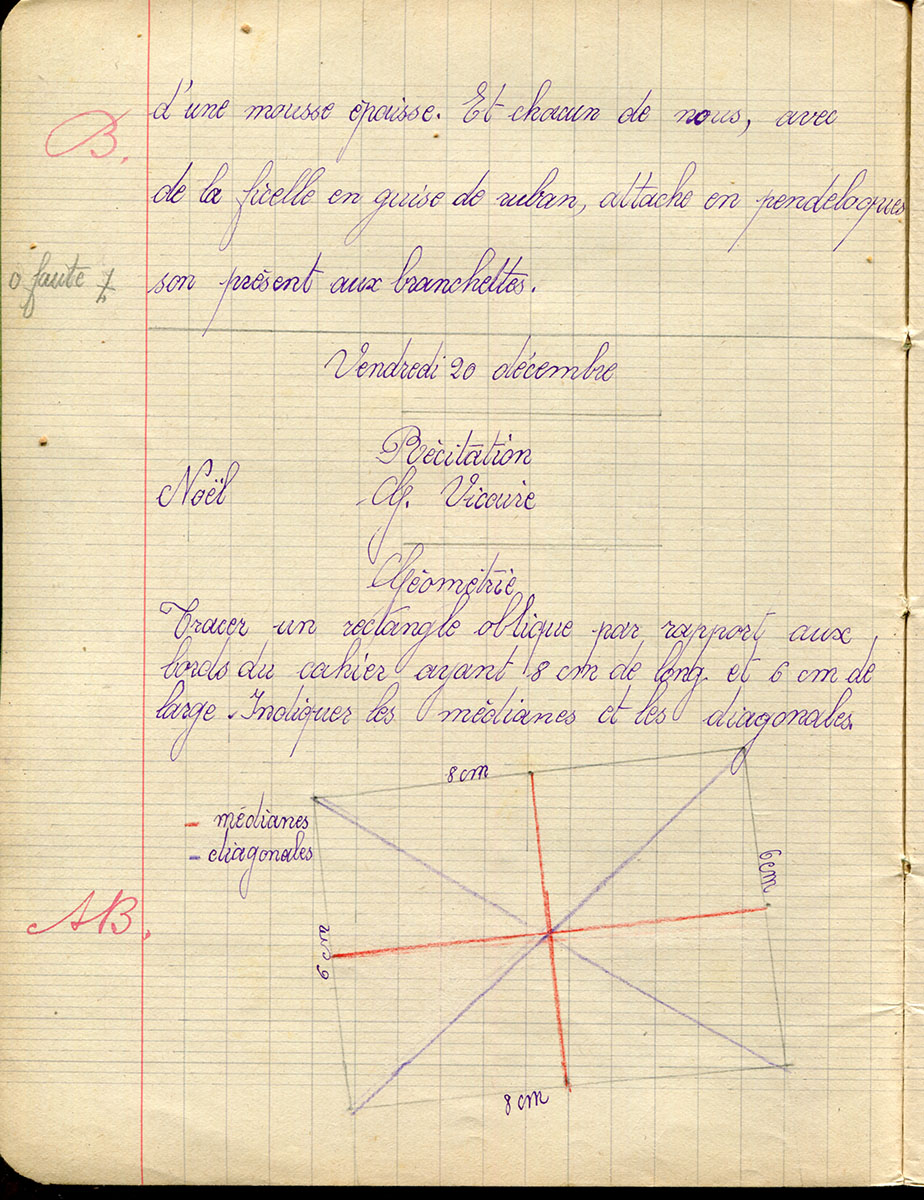 d'une mousse épaisse. Et chacun de nous, avec
B.
de la ficelle en guise de ruban, attache en pendeloques
0 faute
son présent aux branchettes.
Vendredi 20 décembre
Récitation
Noël G. Vicaire
Géométrie
Tracer un rectangle oblique par rapport aux
bords du cahier ayant 8 cm de long et 6 cm de
large. Indiquer les médianes et les diagonales.
8 cm
- médianes
- diagonales
6 cm
AB.
6 cm
8 cm